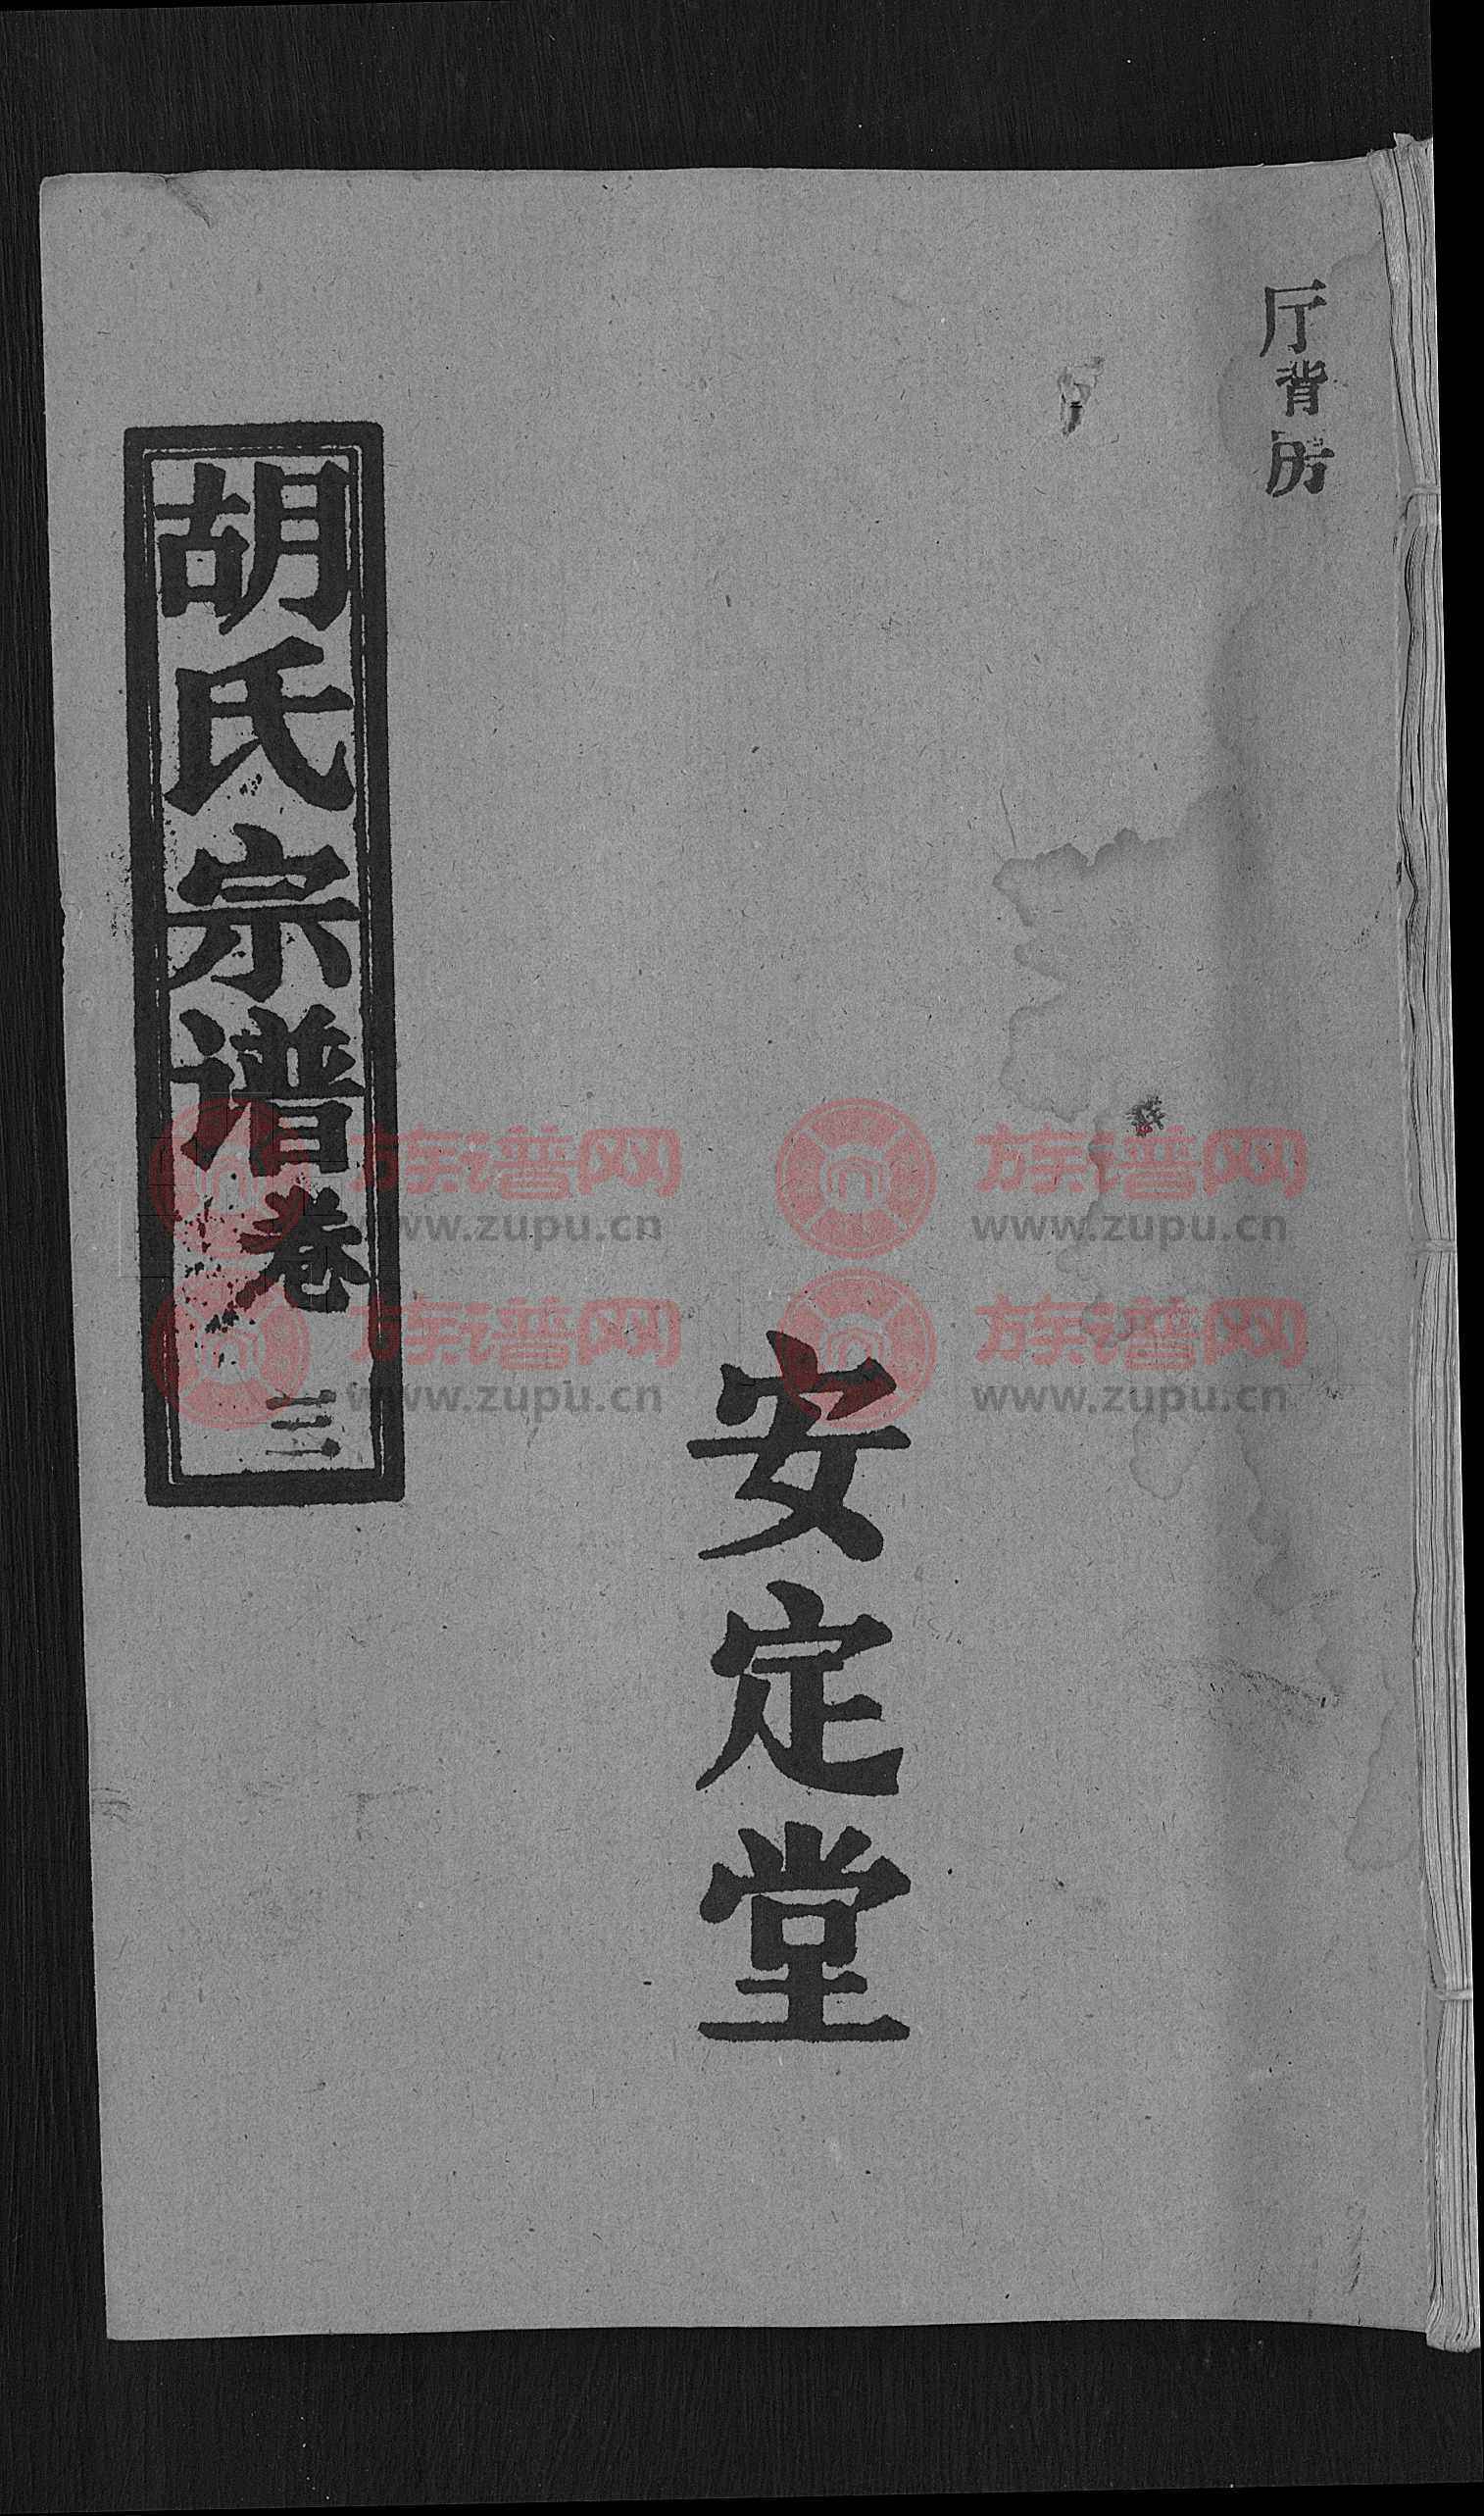 厅背房
安定堂
胡氏宗谱卷三
族谱网
www.zupu.cn
族谱网
www.zupu.cn
族谱网
www.zupu.cn
族谱网
www.zupu.cn